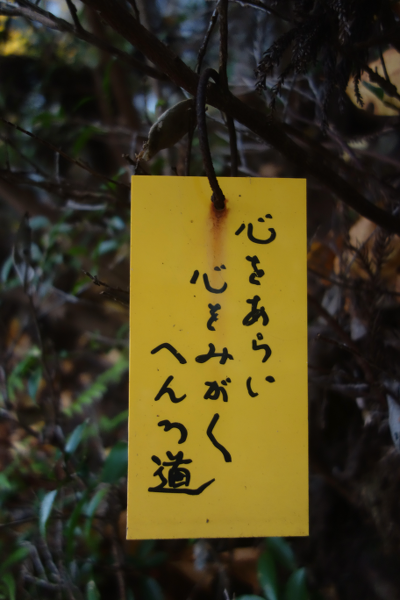 心をあらい
心をみがく
へんろ道